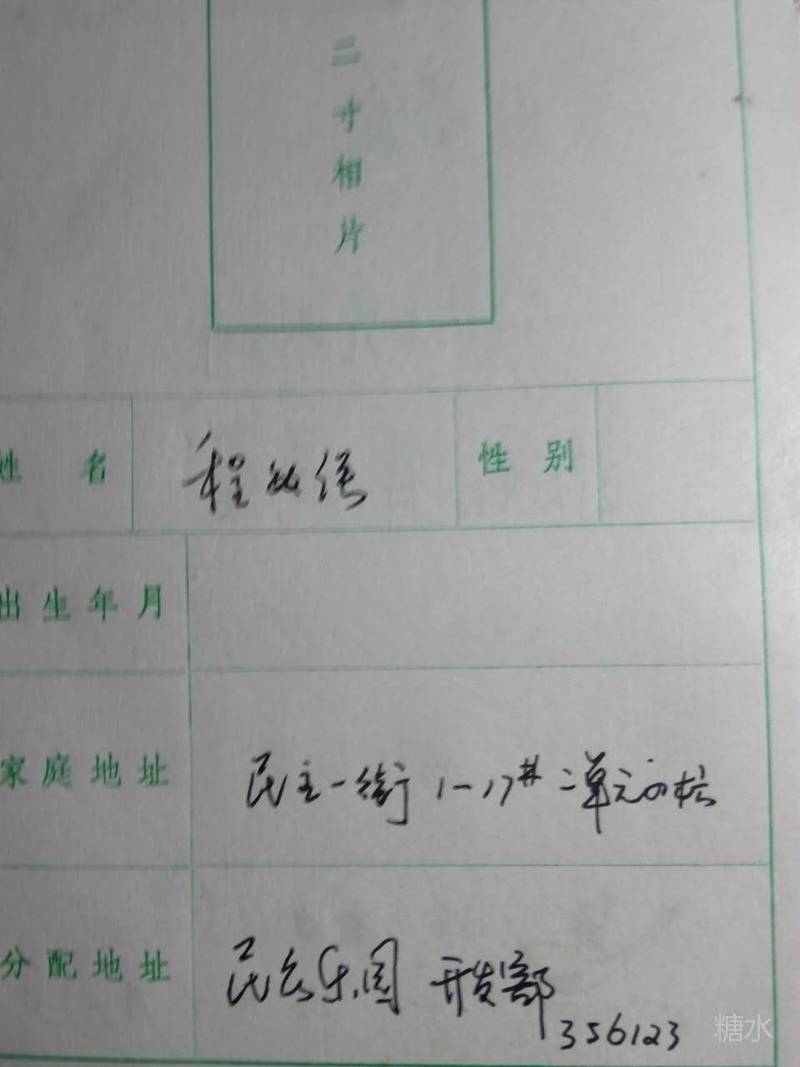 二寸相片
姓名 程 性别
出生年月
家庭地址 民主一街 1-17# 二单元
分配地址 民众乐园 开发部
356123
糖水